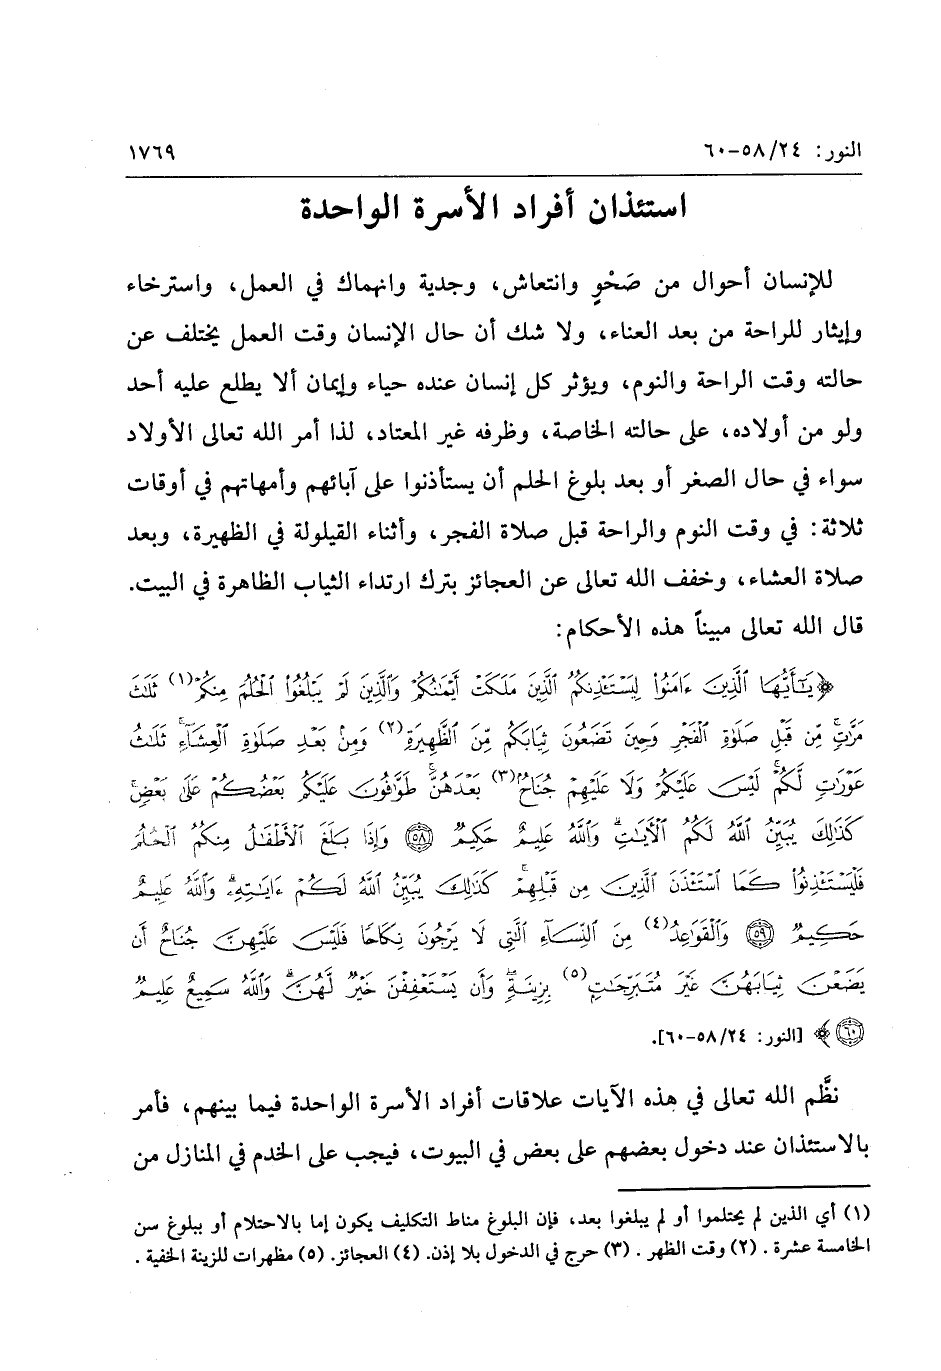 النور: ٢٤/٥٨-٦٠ ١٧٦٩
استئذان أفراد الأسرة الواحدة
للإنسان أحوال من صَحْوٍ وانتعاش، وجدية وانهماك في العمل، واسترخاء
وإيثار للراحة من بعد العناء، ولا شك أن حال الإنسان وقت العمل يختلف عن
حالته وقت الراحة والنوم، ويؤثر كل إنسان عنده حياء وإيمان ألا يطلع عليه أحد
ولو من أولاده، على حالته الخاصة، وظرفه غير المعتاد، لذا أمر الله تعالى الأولاد
سواء في حال الصغر أو بعد بلوغ الحلم أن يستأذنوا على آبائهم وأمهاتهم في أوقات
ثلاثة: في وقت النوم والراحة قبل صلاة الفجر، وأثناء القيلولة في الظهيرة، وبعد
صلاة العشاء، وخفف الله تعالى عن العجائز بترك ارتداء الثياب الظاهرة في البيت.
قال الله تعالى مبيناً هذه الأحكام:
﴿يَٰٓأَيُّهَا ٱلَّذِينَ ءَامَنُوا۟ لِيَسْتَـْٔذِنكُمُ ٱلَّذِينَ مَلَكَتْ أَيْمَٰنُكُمْ وَٱلَّذِينَ لَمْ يَبْلُغُوا۟ ٱلْحُلُمَ مِنكُمْ(١) ثَلَٰثَ
مَرَّٰتٍۢ ۚ مِّن قَبْلِ صَلَوٰةِ ٱلْفَجْرِ وَحِينَ تَضَعُونَ ثِيَابَكُم مِّنَ ٱلظَّهِيرَةِ(٢) وَمِنۢ بَعْدِ صَلَوٰةِ ٱلْعِشَآءِ ۚ ثَلَٰثُ
عَوْرَٰتٍۢ لَّكُمْ ۚ لَيْسَ عَلَيْكُمْ وَلَا عَلَيْهِمْ جُنَاحٌۢ(٣) بَعْدَهُنَّ ۚ طَوَّٰفُونَ عَلَيْكُم بَعْضُكُمْ عَلَىٰ بَعْضٍۢ ۚ
كَذَٰلِكَ يُبَيِّنُ ٱللَّهُ لَكُمُ ٱلْءَايَٰتِ ۗ وَٱللَّهُ عَلِيمٌ حَكِيمٌۭ ﴿٥٨﴾ وَإِذَا بَلَغَ ٱلْأَطْفَٰلُ مِنكُمُ ٱلْحُلُمَ
فَلْيَسْتَـْٔذِنُوا۟ كَمَا ٱسْتَـْٔذَنَ ٱلَّذِينَ مِن قَبْلِهِمْ ۚ كَذَٰلِكَ يُبَيِّنُ ٱللَّهُ لَكُمْ ءَايَٰتِهِۦ ۗ وَٱللَّهُ عَلِيمٌ
حَكِيمٌۭ ﴿٥٩﴾ وَٱلْقَوَٰعِدُ(٤) مِنَ ٱلنِّسَآءِ ٱلَّٰتِى لَا يَرْجُونَ نِكَاحًۭا فَلَيْسَ عَلَيْهِنَّ جُنَاحٌ أَن
يَضَعْنَ ثِيَابَهُنَّ غَيْرَ مُتَبَرِّجَٰتٍۭ(٥) بِزِينَةٍۢ ۖ وَأَن يَسْتَعْفِفْنَ خَيْرٌۭ لَّهُنَّ ۗ وَٱللَّهُ سَمِيعٌ عَلِيمٌۭ
﴿٦٠﴾﴾ [النور: ٢٤/٥٨-٦٠].
نظَّم الله تعالى في هذه الآيات علاقات أفراد الأسرة الواحدة فيما بينهم، فأمر
بالاستئذان عند دخول بعضهم على بعض في البيوت، فيجب على الخدم في المنازل من
(١) أي الذين لم يحتلموا أو لم يبلغوا بعد، فإن البلوغ مناط التكليف يكون إما بالاحتلام أو ببلوغ سن
الخامسة عشرة. (٢) وقت الظهر. (٣) حرج في الدخول بلا إذن. (٤) العجائز. (٥) مظهرات للزينة الخفية.